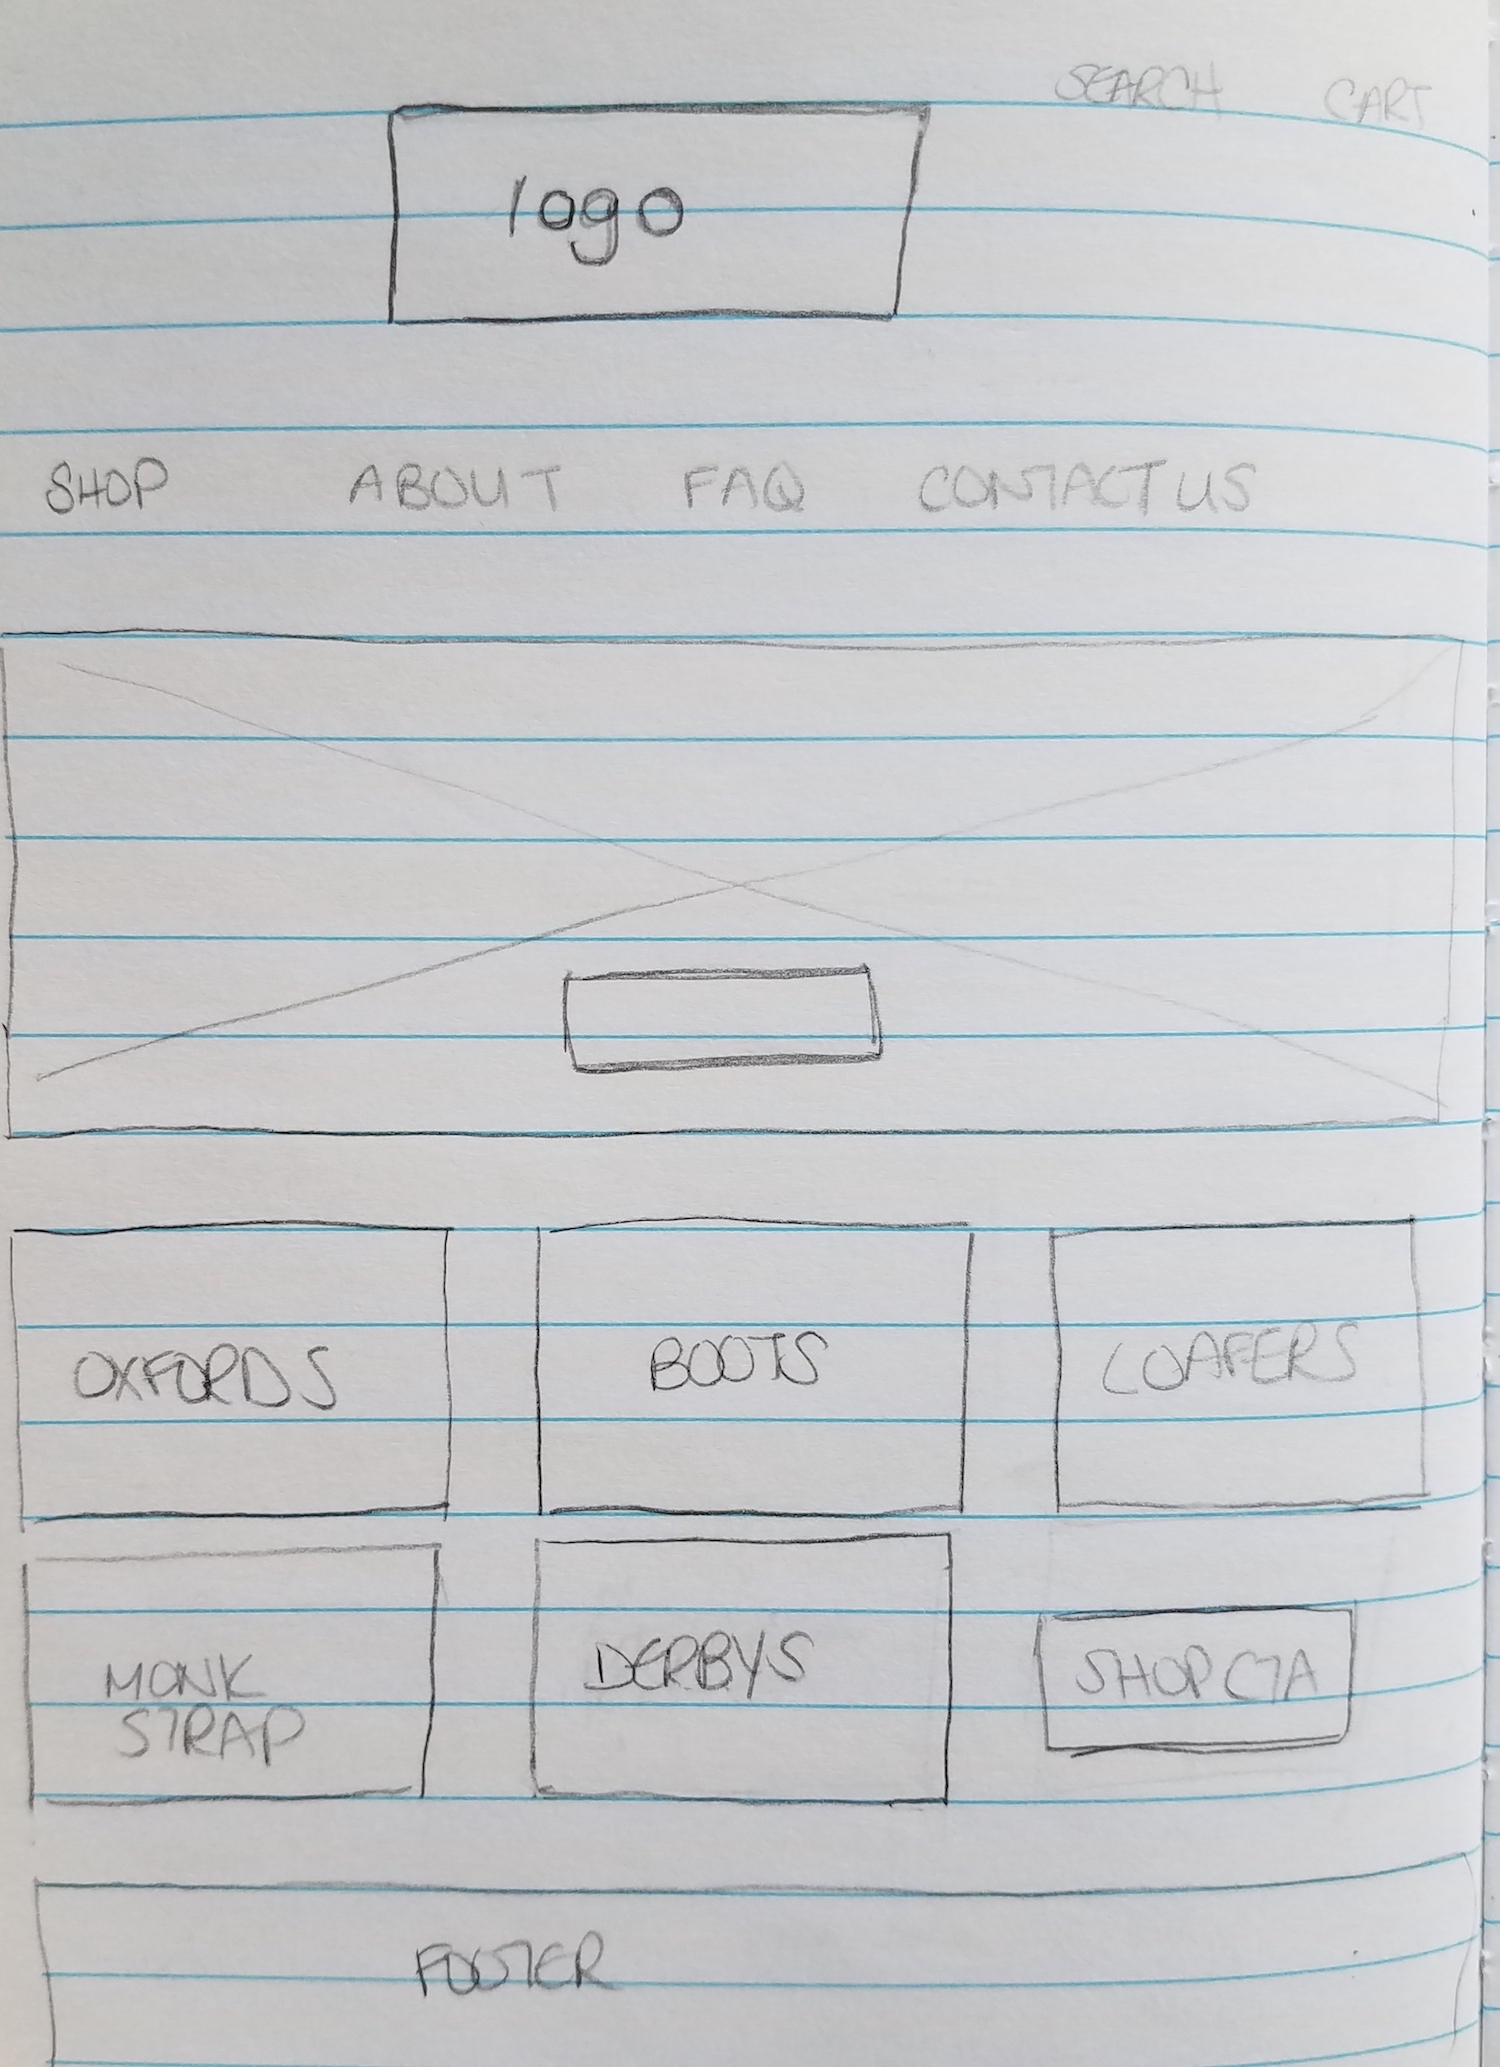 SEARCH CART
logo
SHOP ABOUT FAQ CONTACT US
OXFORDS BOOTS LOAFERS
MONK
STRAP
DERBYS
SHOP CTA
FOOTER